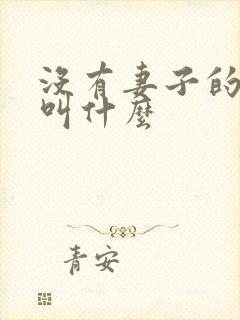 沒有妻子的
叫什麼
青安